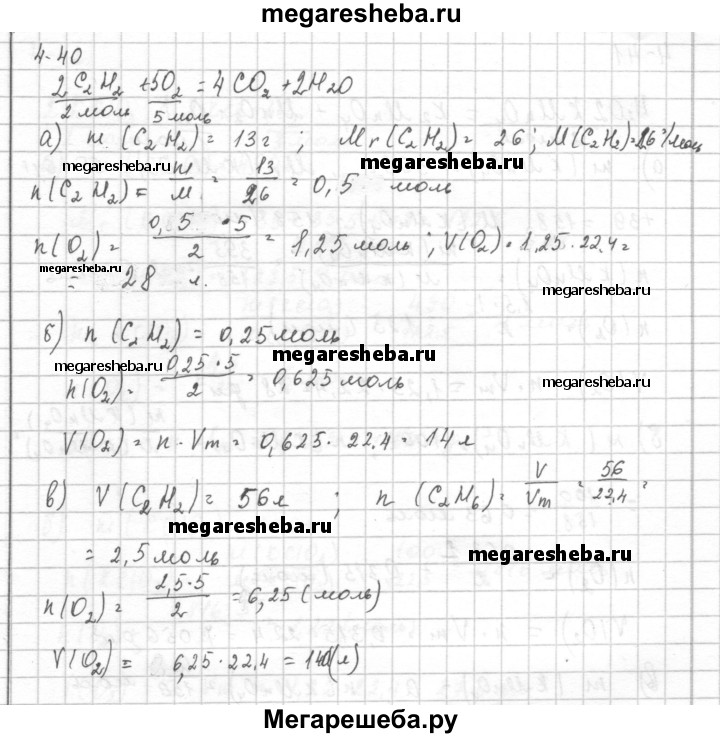 megaresheba.ru
4-40
2C₂H₂ + 5O₂ = 4CO₂ + 2H₂O
2 моль 5 моль
а) m (C₂H₂) = 13г ; Mr(C₂H₂) = 26 ; M(C₂H₂)=26 г/моль
megaresheba.ru megaresheba.ru
n(C₂H₂) = m/M = 13/26 = 0,5 моль
n(O₂) = 0,5 · 5/2 = 1,25 моль ; V(O₂) = 1,25 · 22,4 =
megaresheba.ru
= 28 л.
megaresheba.ru
б) n (C₂H₂) = 0,25 моль
megaresheba.ru
megaresheba.ru
n(O₂) = 0,25 · 5/2 = 0,625 моль
megaresheba.ru
V(O₂) = n · Vm = 0,625 · 22,4 = 14 л
в) V(C₂H₂) = 56л ; n (C₂H₆) = V/Vm = 56/22,4 =
megaresheba.ru
= 2,5 моль
megaresheba.ru
n(O₂) = 2,5·5/2 = 6,25 (моль)
V(O₂) = 6,25 · 22,4 = 140(л)
Мегарешеба.ру